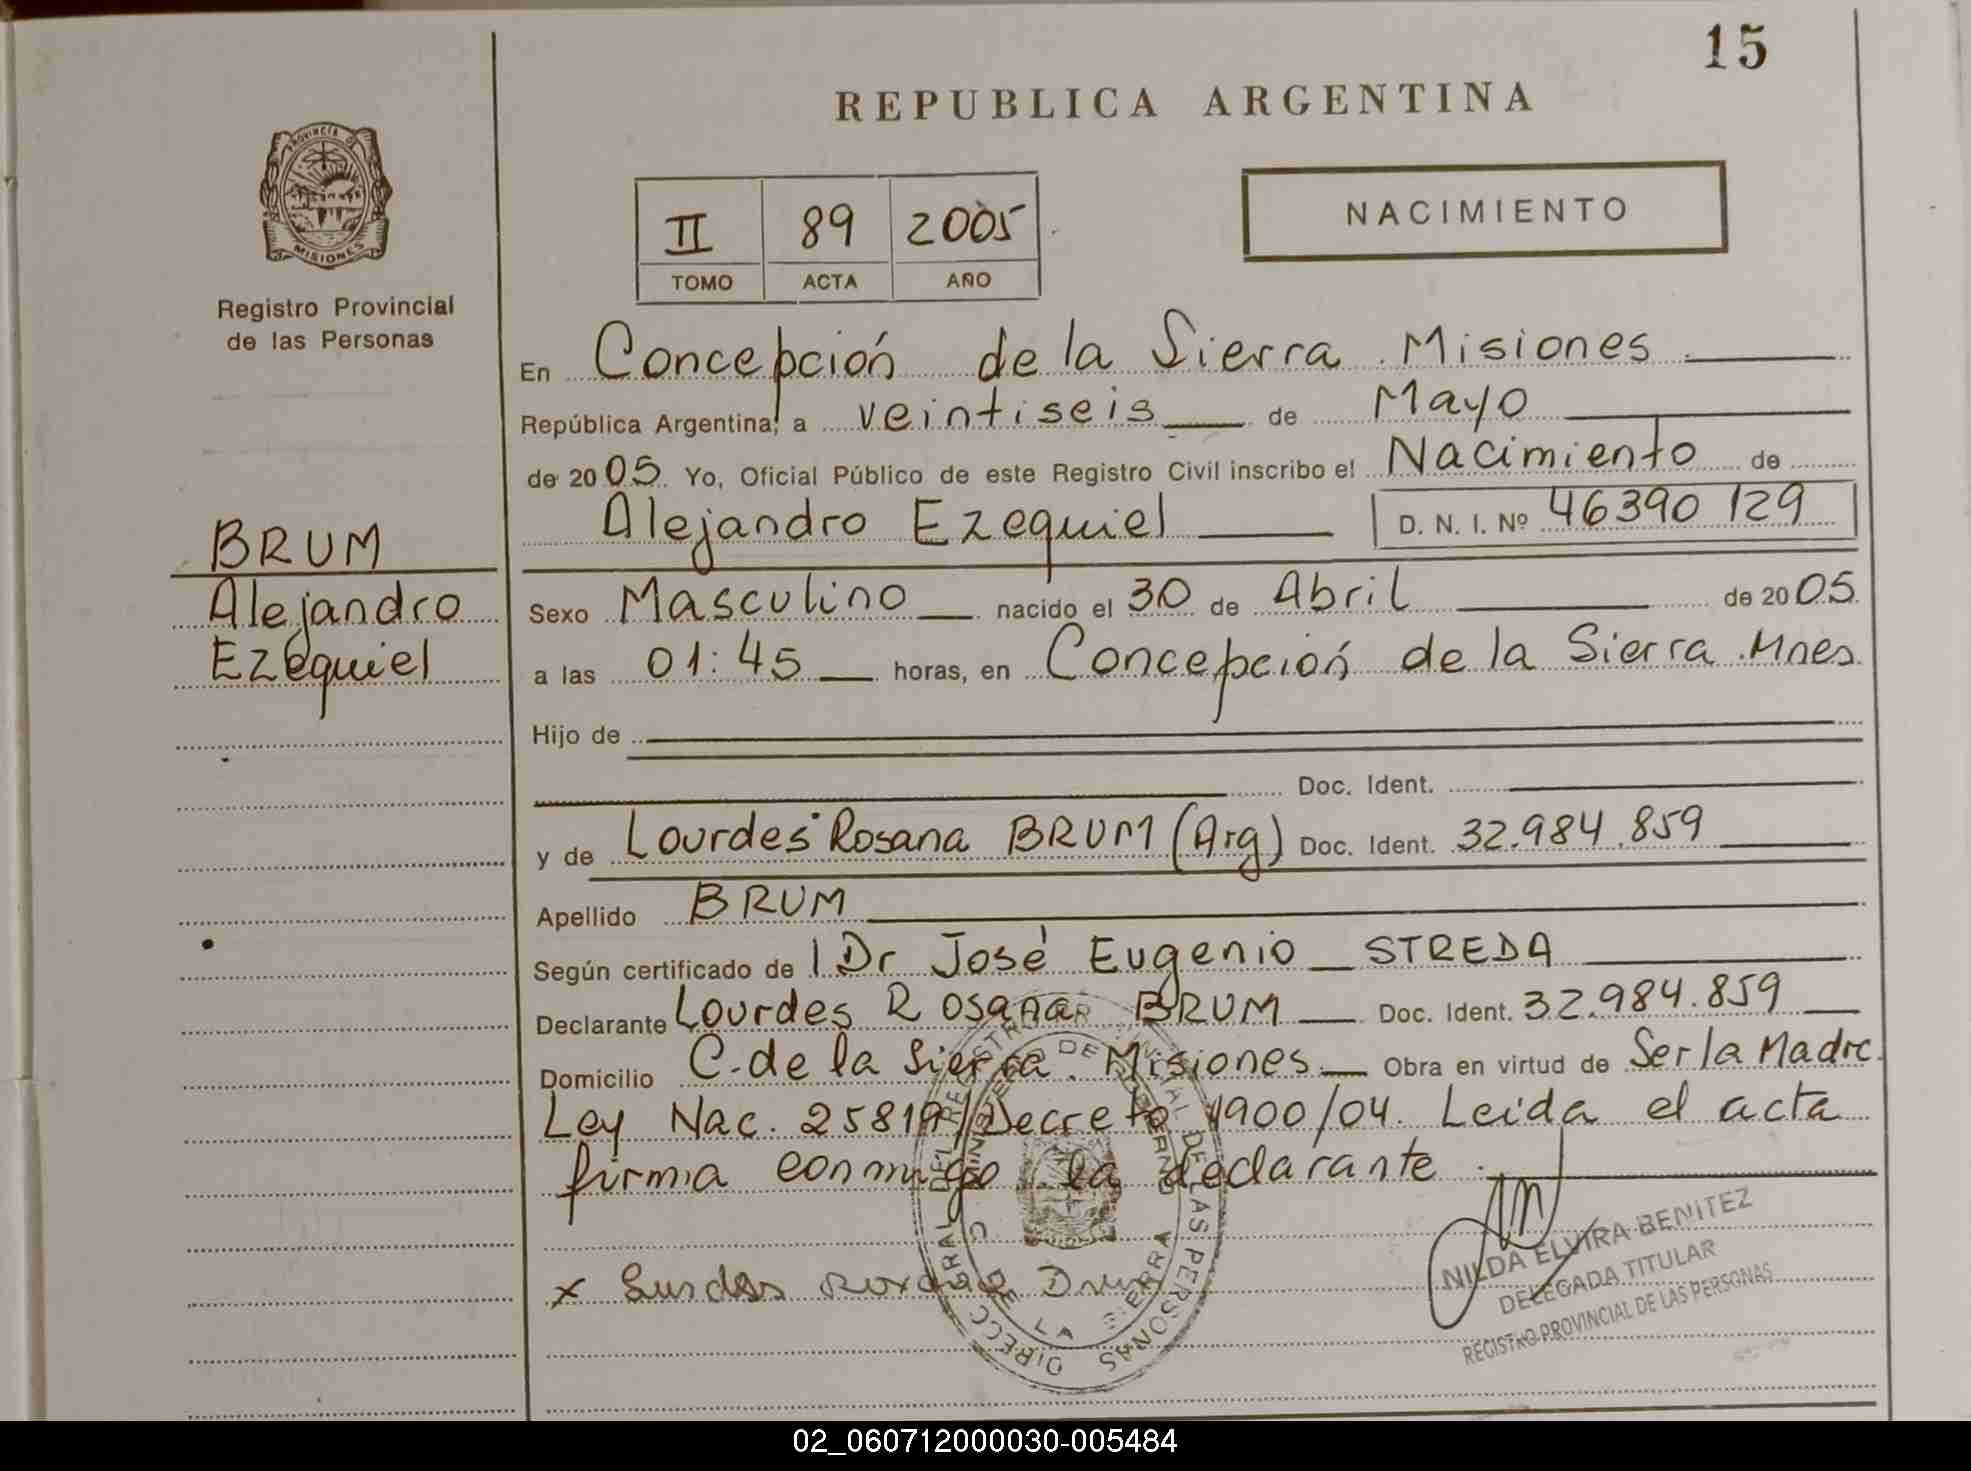 15
REPUBLICA ARGENTINA
PROVINCIA DE
MISIONES
Registro Provincial
de las Personas
II 89 2005
TOMO ACTA AÑO
NACIMIENTO
En Concepción de la Sierra Misiones
República Argentina, a veintiseis de Mayo
de 2005 Yo, Oficial Público de este Registro Civil inscribo el Nacimiento de
Alejandro Ezequiel D. N. I. Nº 46390 129
BRUM
Alejandro
Ezequiel
Sexo Masculino nacido el 30 de Abril de 2005
a las 01:45 horas, en Concepción de la Sierra. Mnes.
Hijo de
Doc. Ident.
y de Lourdes Rosana BRUM (Arg) Doc. Ident. 32.984.859
Apellido BRUM
Según certificado de l Dr José Eugenio STREDA
Declarante Lourdes Rosana BRUM Doc. Ident. 32.984.859
Domicilio C. de la Sierra. Misiones Obra en virtud de Ser la Madre.
Ley Nac. 25819/Decreto 1900/04. Leida el acta
firma conmigo la declarante.
x
DE LA SIERRA
NILDA ELVIRA BENITEZ
DELEGADA TITULAR
REGISTRO PROVINCIAL DE LAS PERSONAS
02_060712000030-005484